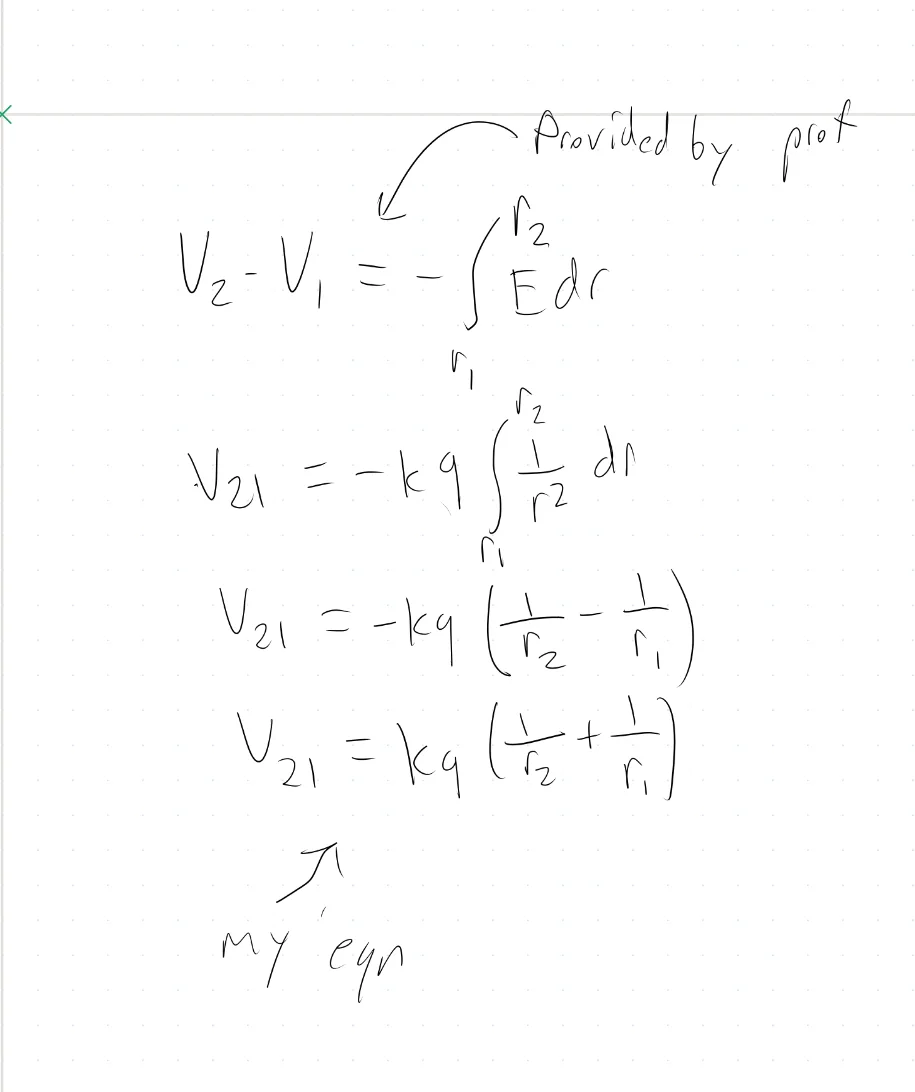 Provided by prof
V₂ - V₁ = - ∫_{r₁}^{r₂} E dr
V₂₁ = -kq ∫_{r₁}^{r₂} 1/r² dr
V₂₁ = -kq (1/r₂ - 1/r₁)
V₂₁ = kq (1/r₂ + 1/r₁)
my eqn